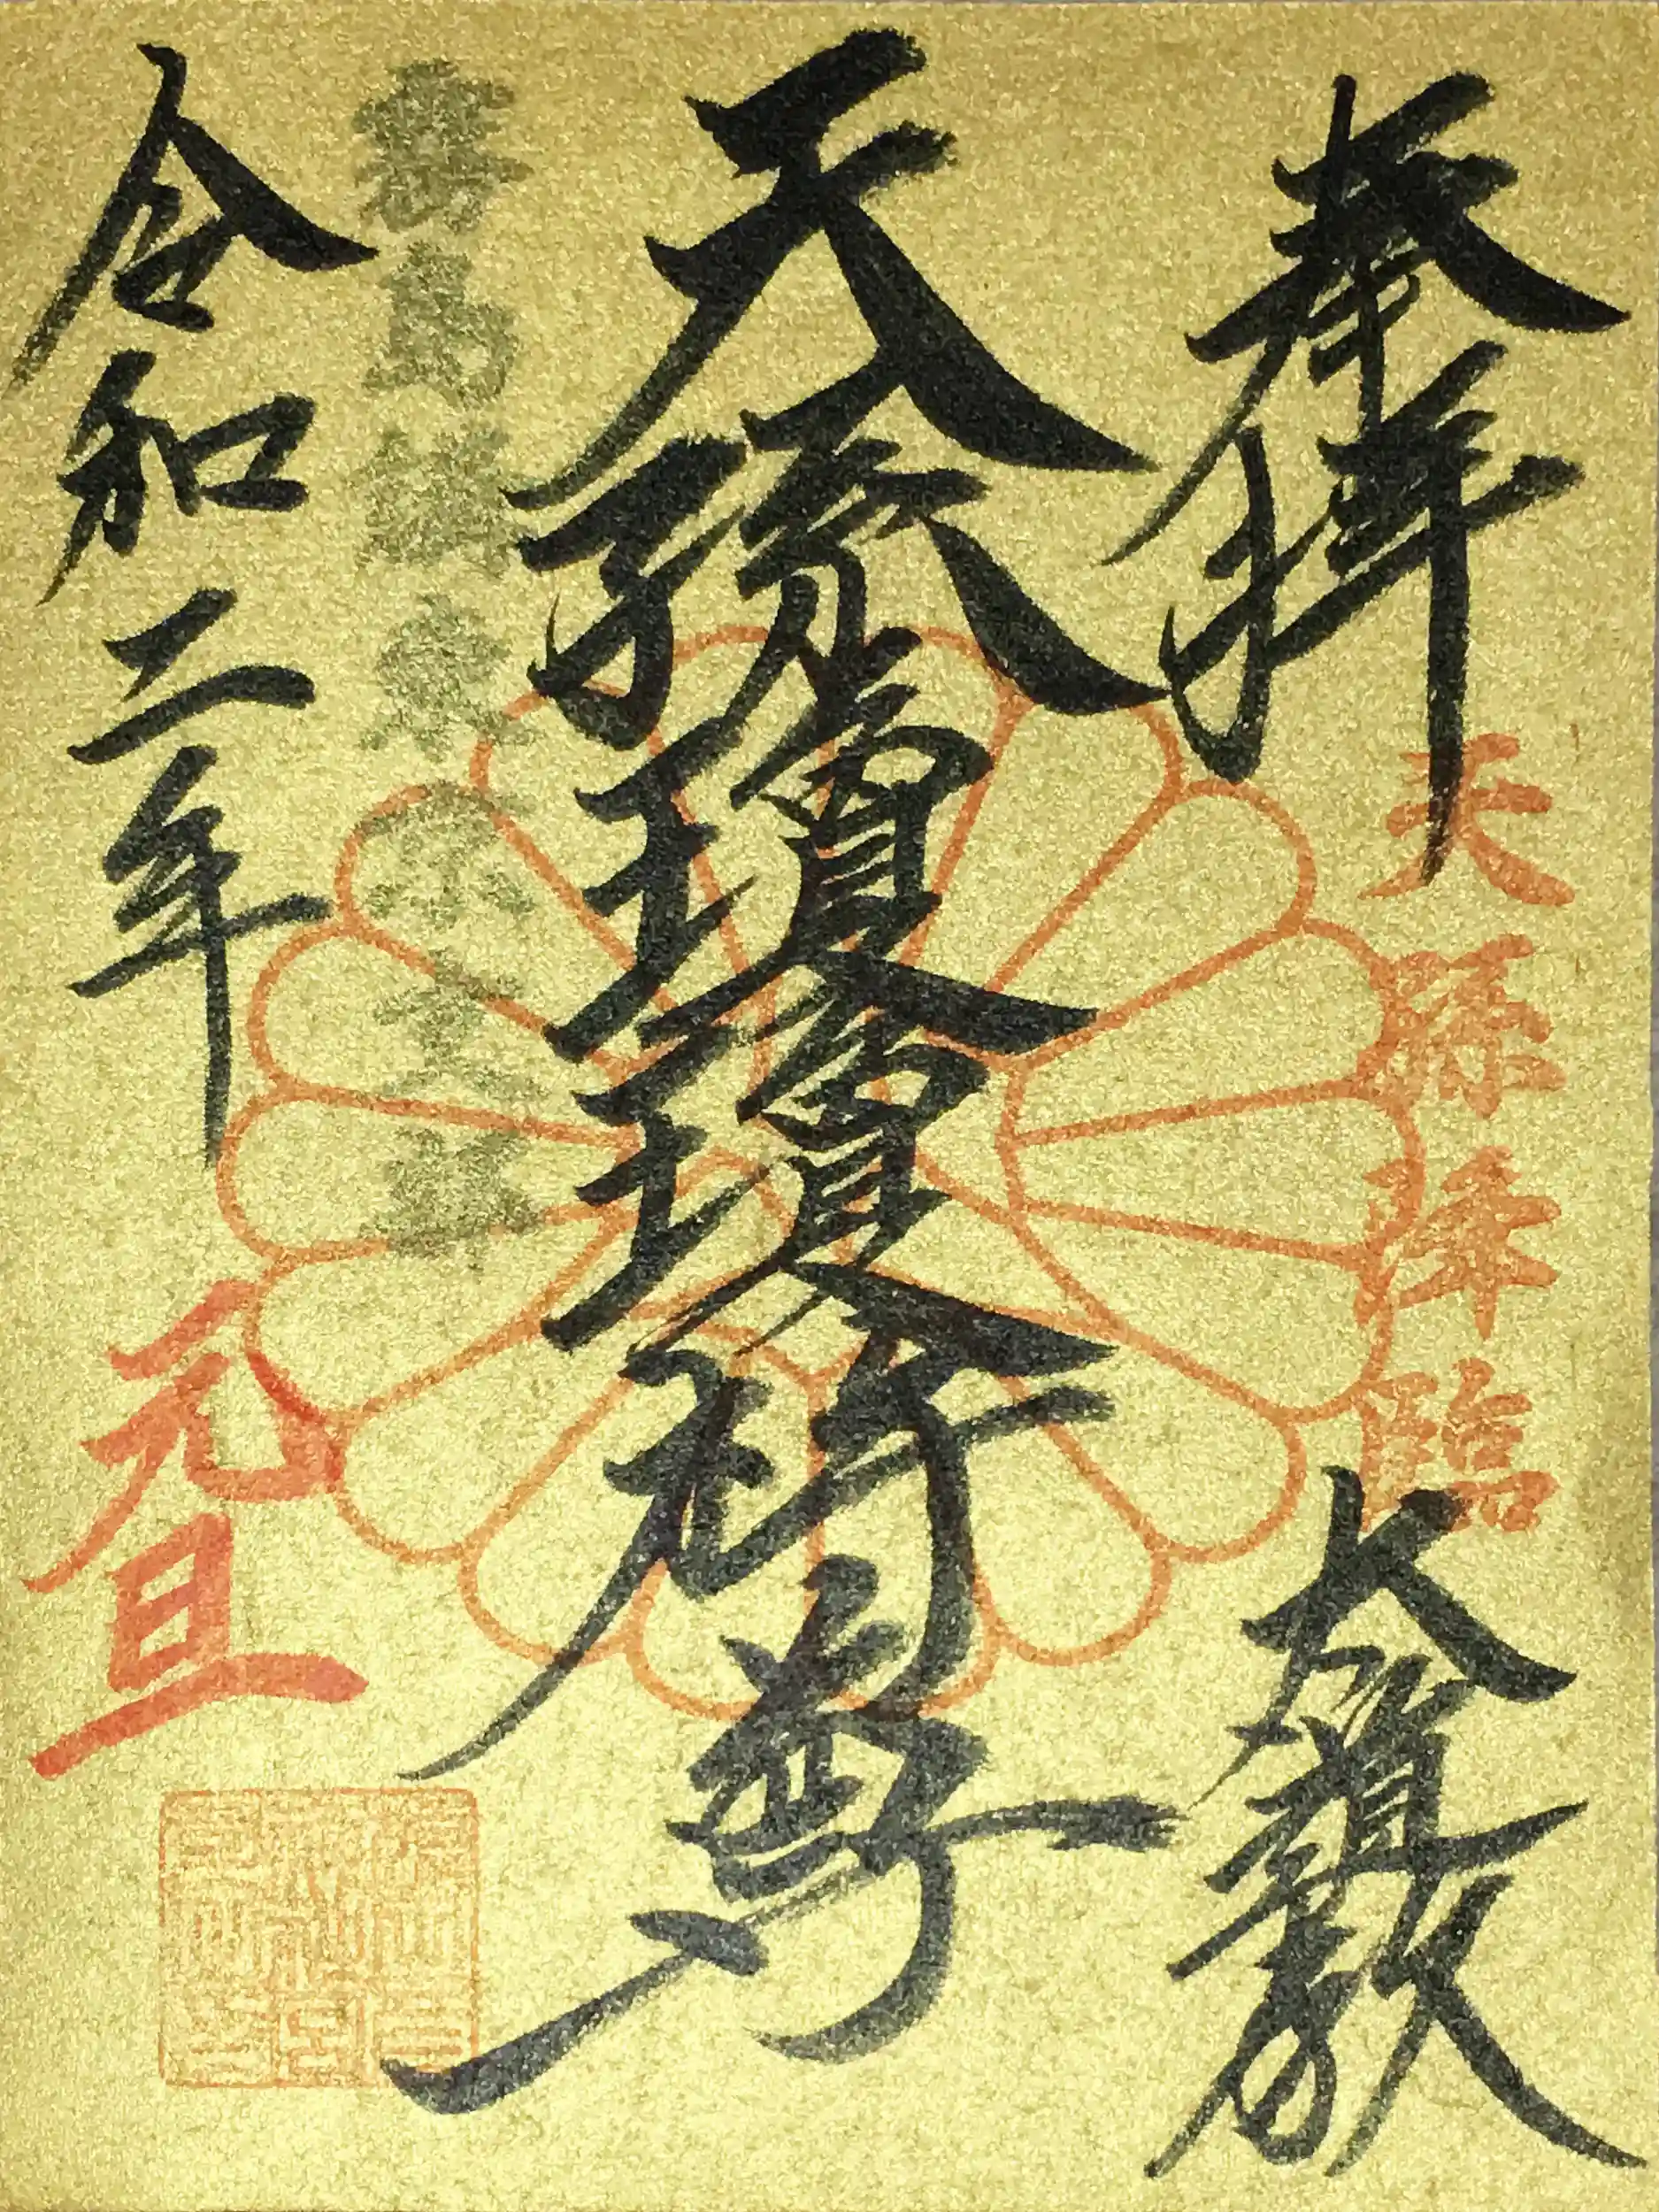 奉拝
天孫降臨
大道教
天孫瓊瓊杵尊
霧島神
令和二年
元旦